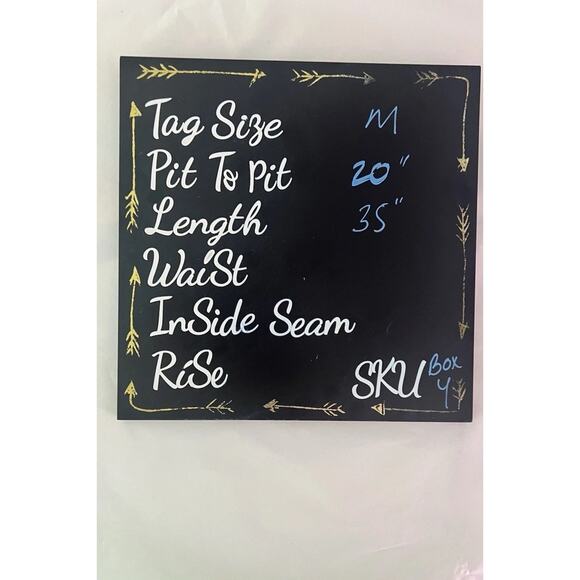 Tag Size M
Pit To Pit 20"
Length 35"
WaiSt
InSide Seam
RiSe
SKU Box 4